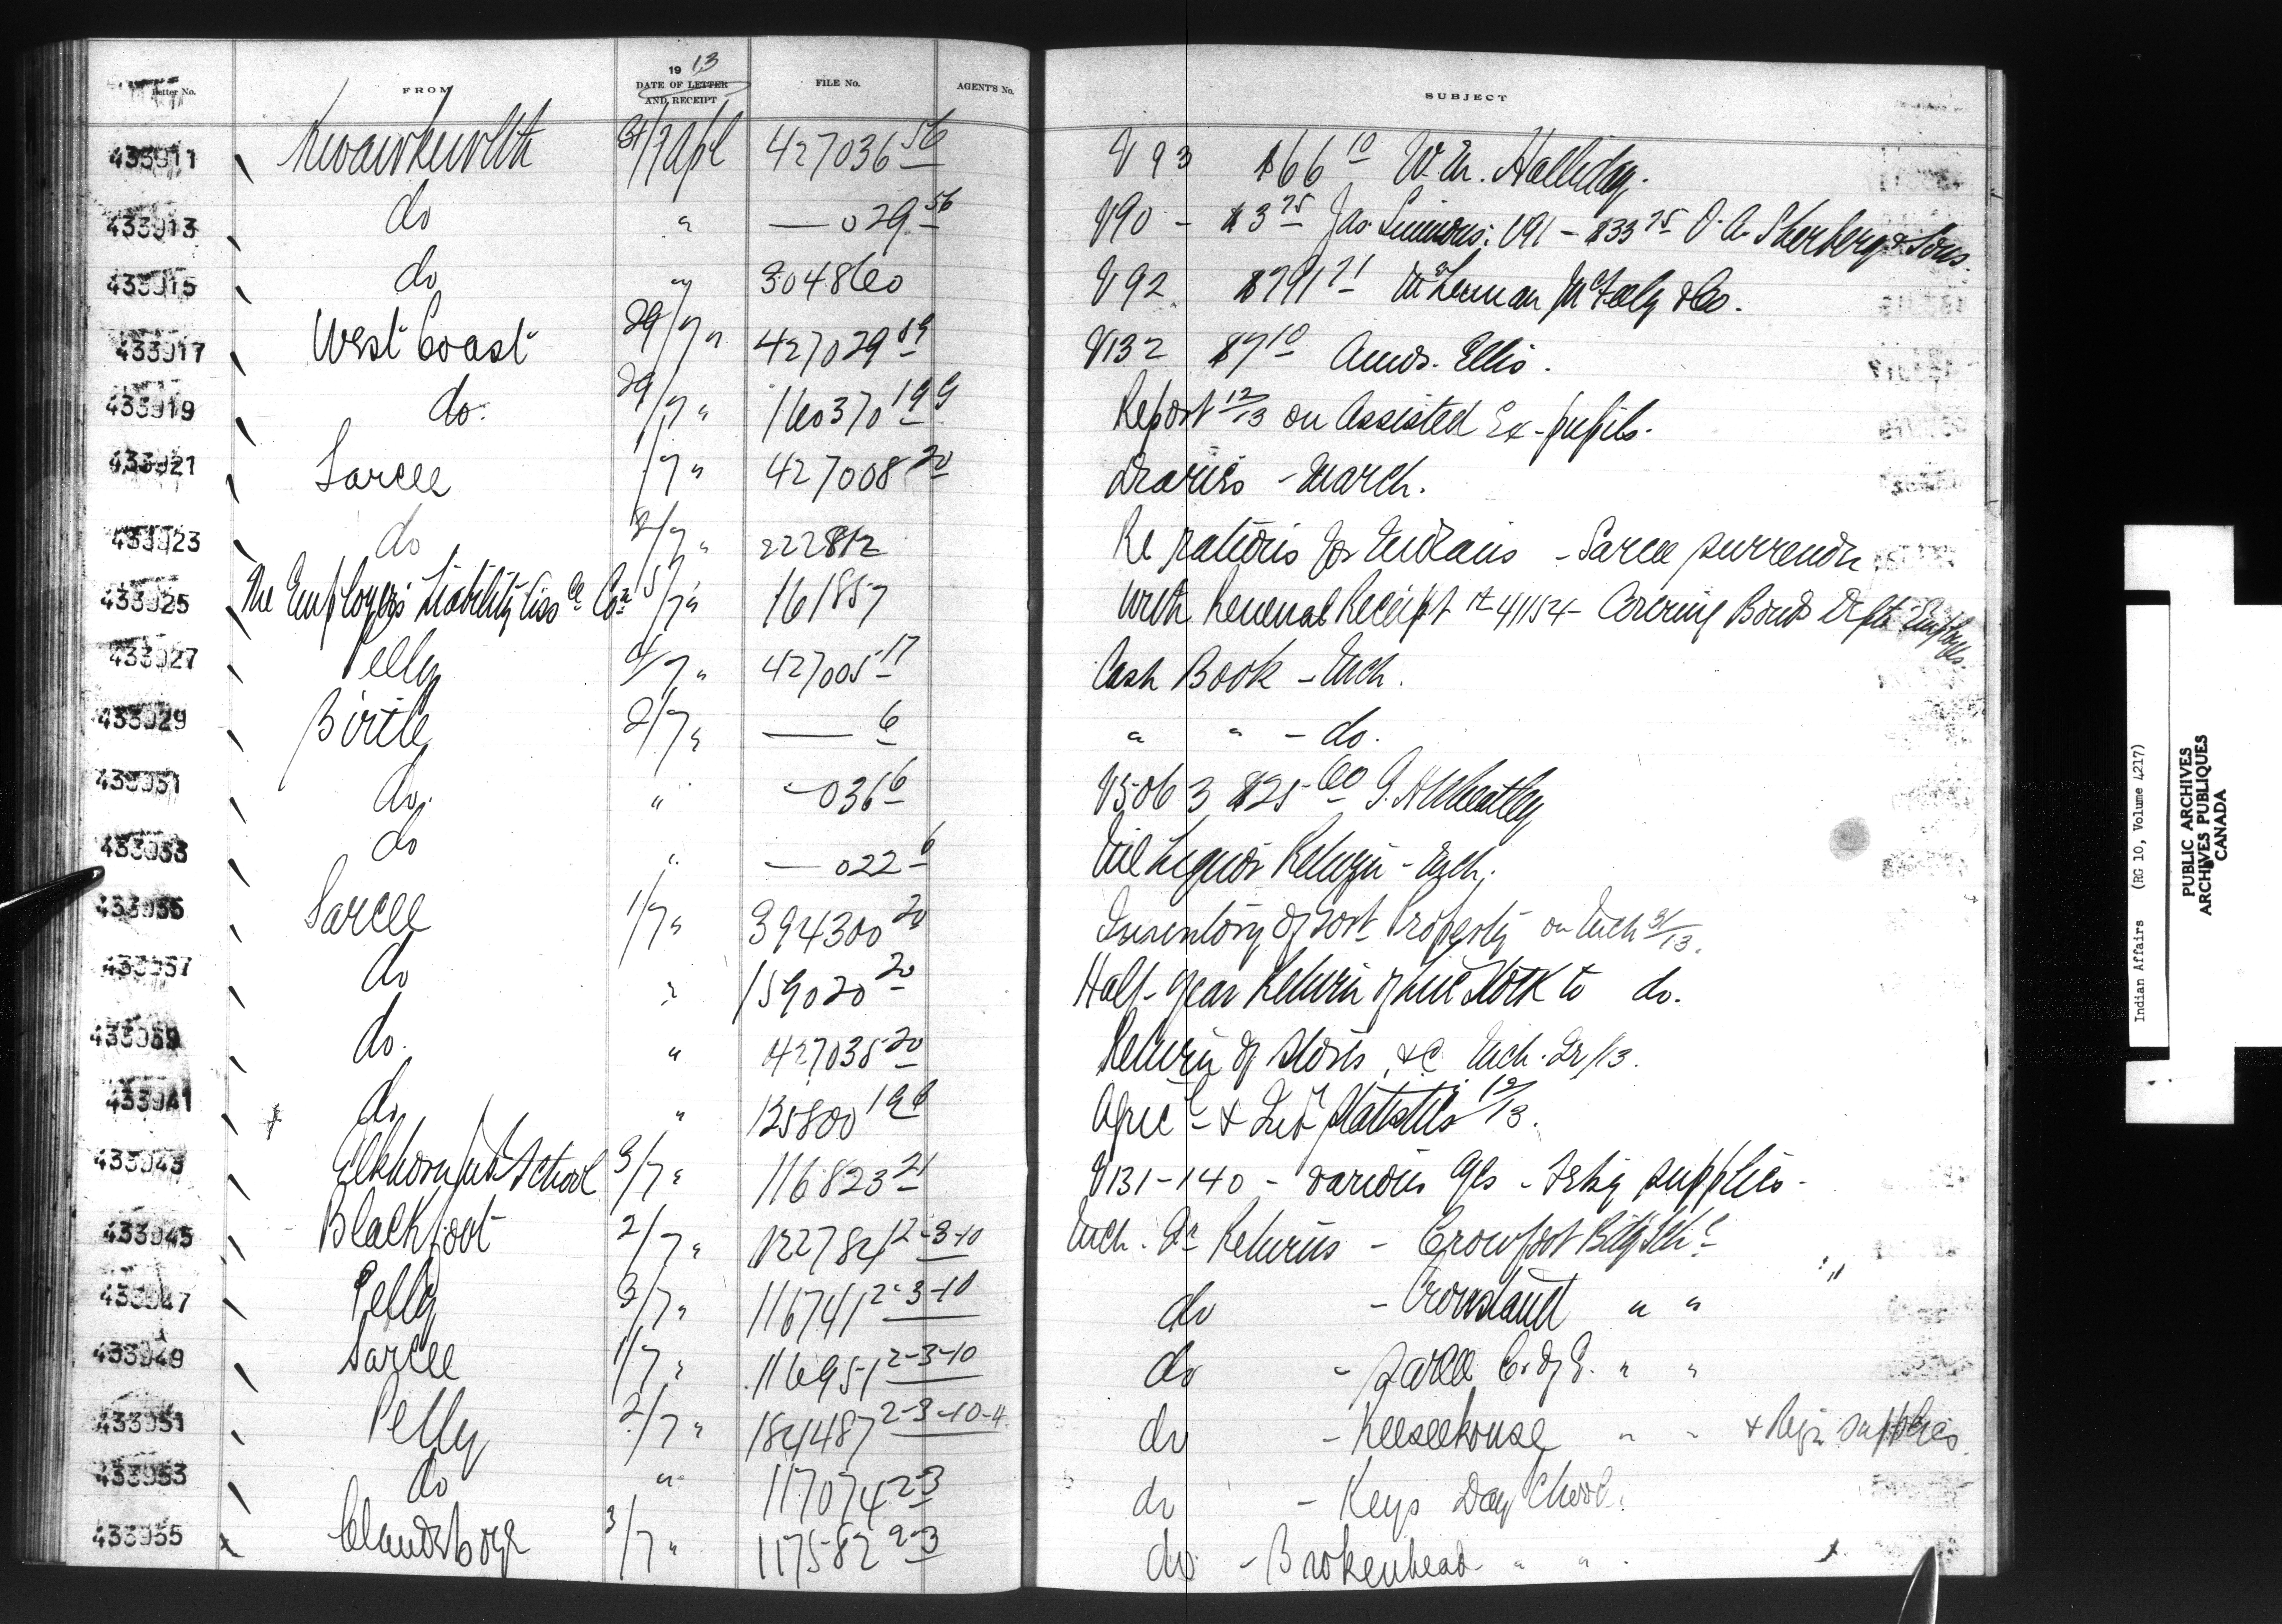 Letter No. FROM 19 13 DATE OF LETTER AND RECEIPT FILE No. AGENT'S No. SUBJECT
433911 Kwawkewlth 31/7 Apl 427036 56 V 93 $66 10 W. M. Halliday.
433913 do " — 029 56 V90 - $3 75 Jas. Simmons. V91 - $33 75 O. A. Sherberg & Sons.
433915 do " 304860 V92 $791 71 McLennan McFeely & Co.
433917 West Coast 29/7 " 427029 89 V132 $7 10 Amos. Ellis.
433919 do. 29/7 " 160370 199 Report 12/13 on Assisted Ex-pupils.
433921 Sarcee 1/7 " 427008 20 Diaries - March.
433923 do 2/7 " 222812 Re rations for Indians - Sarcee surrender
433925 The Employers Liability Ass ce Co n 5/7 " 161857 With Renewal Receipt # 41154 - Covering Bonds Dept Employes.
433927 Pelly 4/7 " 427005 17 Cash Book - Mch.
433929 Birtle 2/7 " — 6 " " - do.
433931 do. " — 036 6 V5063 $25 60 G. H. Wheatley
433933 do " — 022 6 Nil Liquor Return - Mch.
433935 Sarcee 1/7 " 394300 20 Inventory of Govt Property on Mch 31/13.
433937 do " 159020 20 Half-year Return of Live Stock to do.
433939 do. " 427038 20 Return of Stores &c Mch. Qr/13.
433941 do " 135800 196 Agric l & Ind l Statistics 12/13.
433943 Elkhorn Ind School 3/7 " 116823 21 V131-140 - various a/cs - supplies -
433945 Blackfoot 2/7 " 122784 12-3-10 Mch. Qr Returns - Crowfoot Bdg Sch l
433947 Pelly 3/7 " 116741 2-3-10 do - Crowstand " "
433949 Sarcee 1/7 " 116951 2-3-10 do - Sarcee C. of E. " "
433951 Pelly 2/7 " 184487 2-3-10-4 do - Keeseekouse " " & Reqn supplies.
433953 do " 117074 2-3 do - Keys Day School.
433955 Clandeboye 3/7 " 117582 2-3 do - Brokenhead " "
Indian Affairs (RG 10, Volume 4217)
PUBLIC ARCHIVES
ARCHIVES PUBLIQUES
CANADA